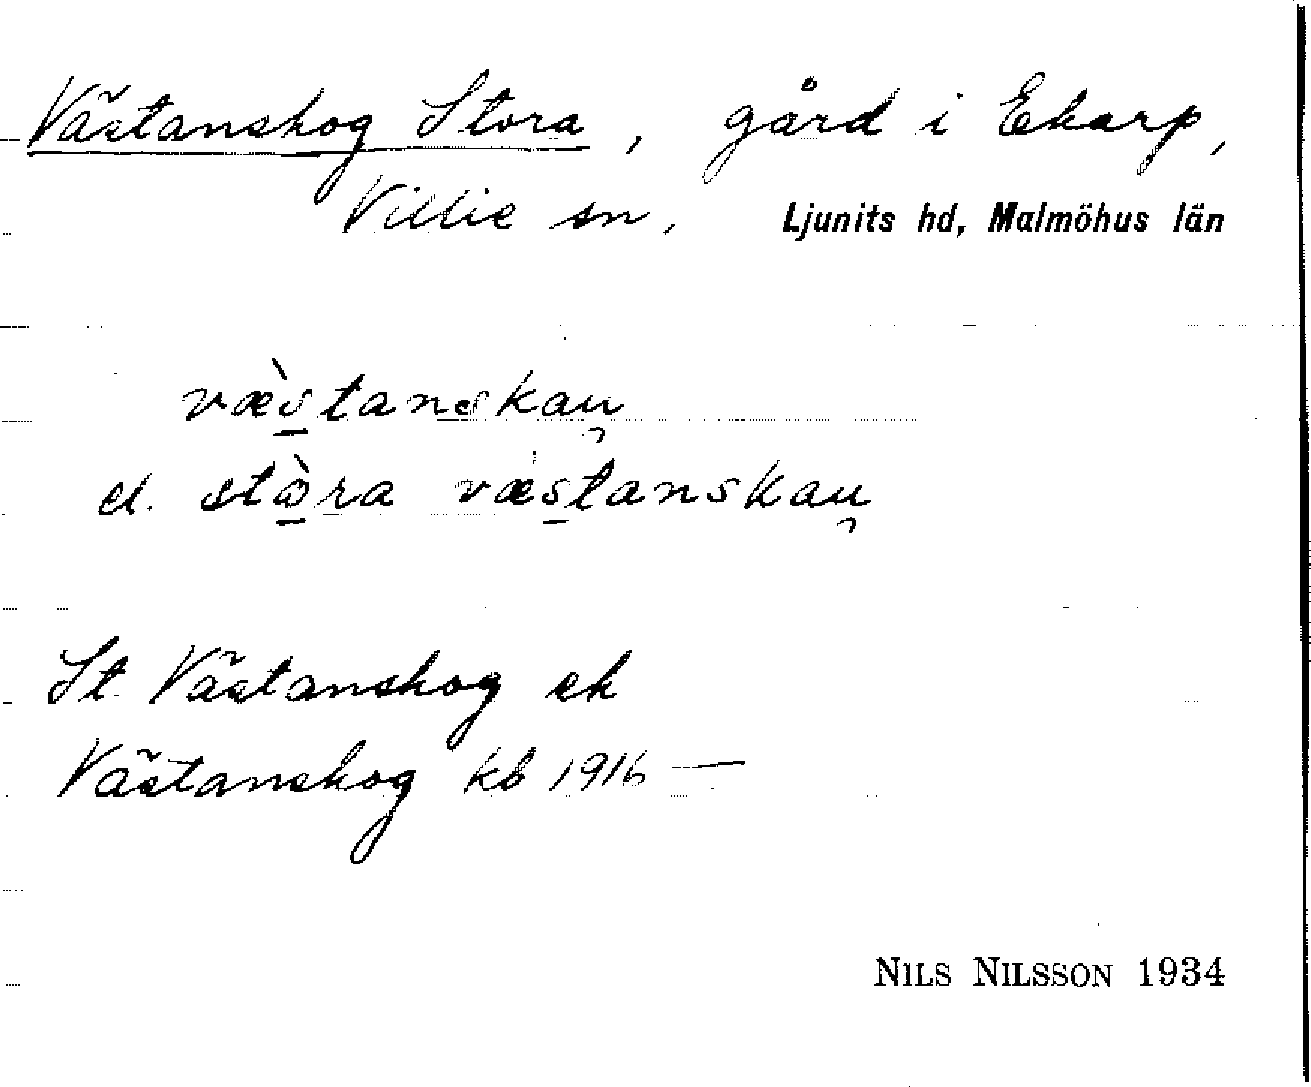 Västanskog Stora, gård i Ekarp,
Villie sn, Ljunits hd, Malmöhus län
væ̀s̲tanskau̯
el. stò̲ra væ's̲tanskau̯
St. Västanskog ek
Västanskog kb 1916 —
NILS NILSSON 1934